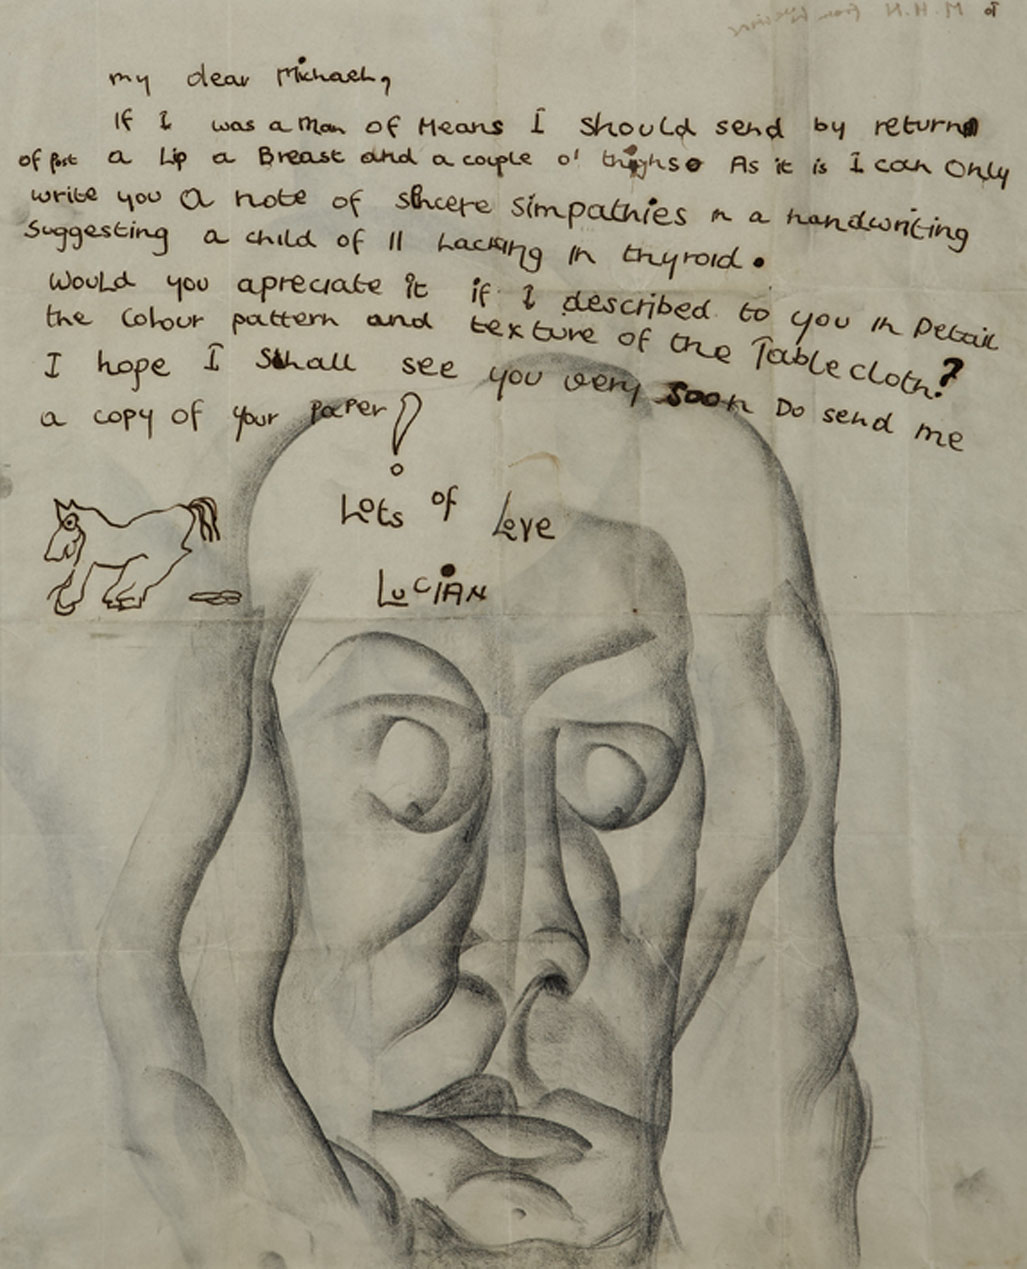 To M.H.N from Lucian
my dear Michael,
If I was a Man of Means I should send by return
of post a Lip a Breast and a couple o' thighs. As it is I can Only
write you a note of sincere simpathies in a handwriting
Suggesting a child of 11 Lacking in thyroid.
Would you apreciate it if I described to you in Detail
the Colour pattern and texture of the Table cloth?
I hope I Shall see you very soon Do send me
a copy of your paper!
Lots of Love
LUCIAN